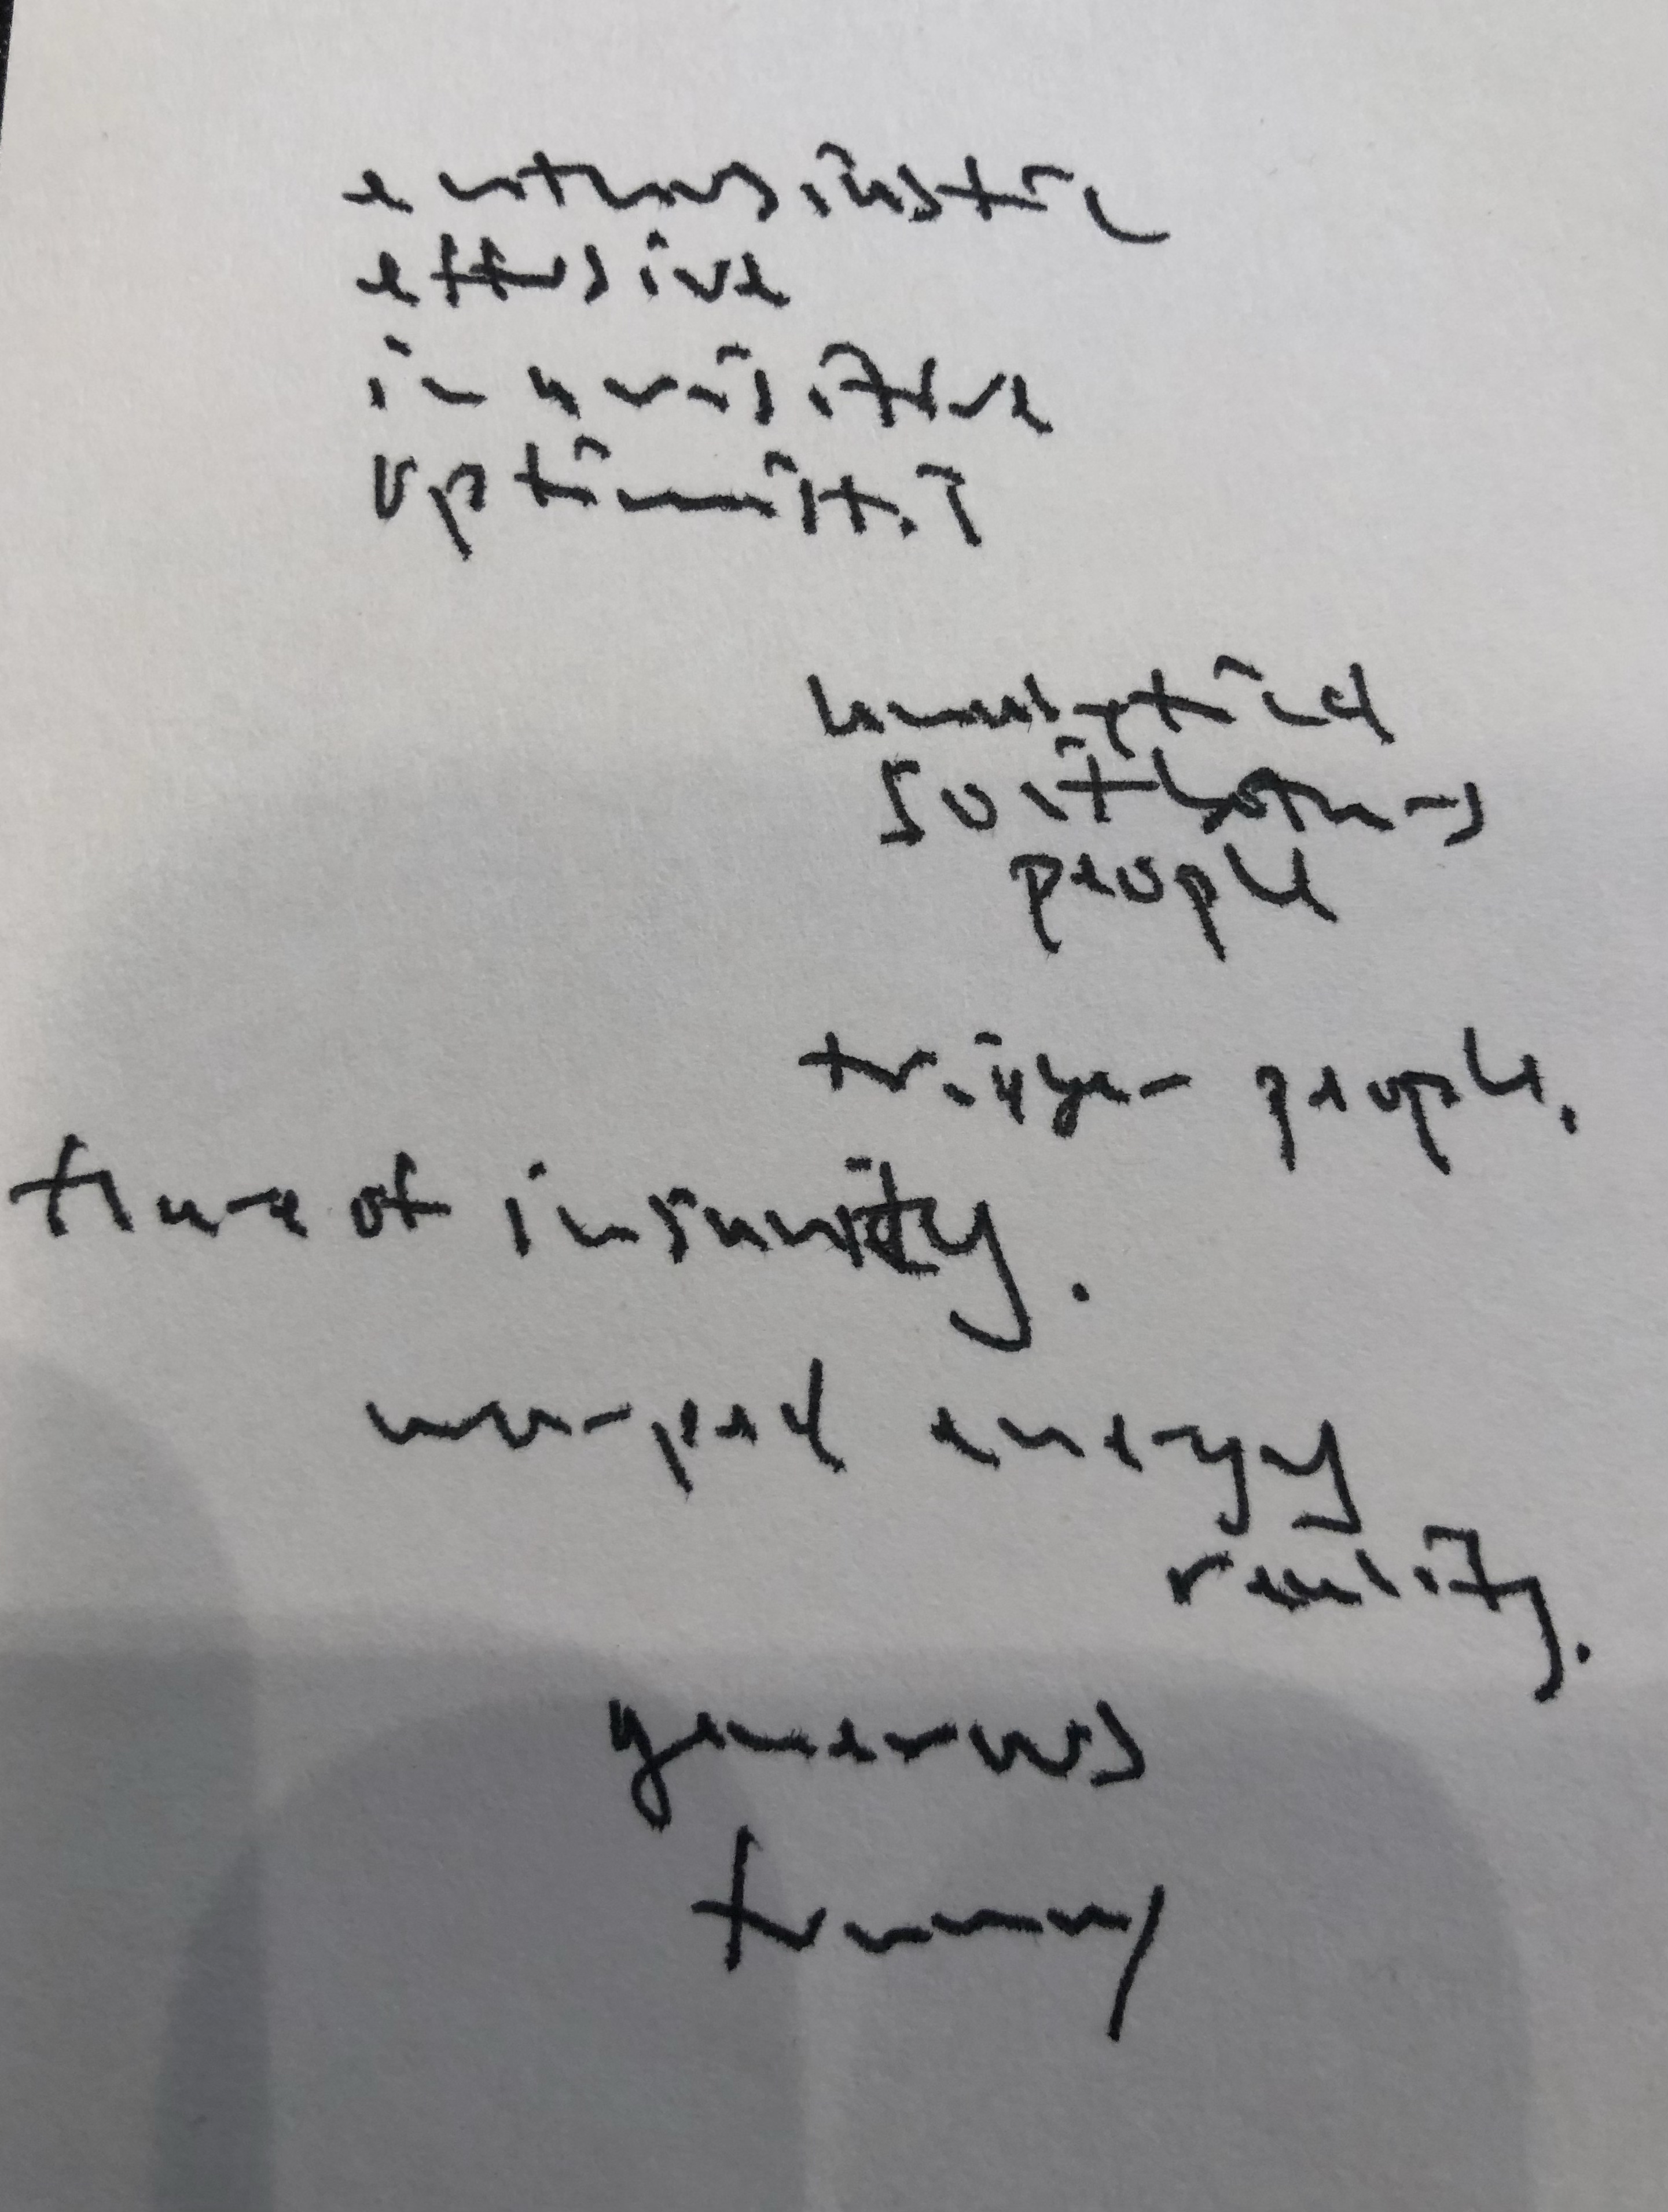 enthusiastic
effusive
inquisitive
optimistic
analytical
so it bothers
people
trigger people.
flare of insanity.
warped energy
reality.
generous
funny